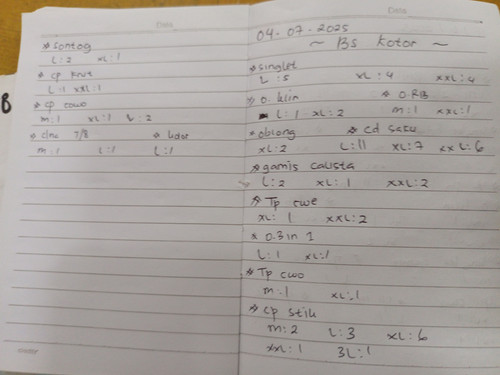 Date
* Sontog
L : 2 XL : 1
* cp knut
L : 1 XXL : 1
* cp cowo
m : 1 XL : 1 L : 2
* clna 7/8
m : 1 L : 1 L : 1
B
Date
04 - 07 - 2025
~ Bs Kotor ~
* singlet
L : 5 XL : 4 XXL : 4
* O. klin * O. RIB
L : 1 XL : 2 m : 1 XXL : 1
* oblong * cd satu
XL : 2 L : 11 XL : 7 XXL : 6
* gamis calista
L : 2 XL : 1 XXL : 2
* Tp cwe
XL : 1 XXL : 2
* O. 3 in 1
L : 1 XL : 1
* Tp cwo
m : 1 XL : 1
* cp stik
m : 2 L : 3 XL : 6
XXL : 1 3L : 1